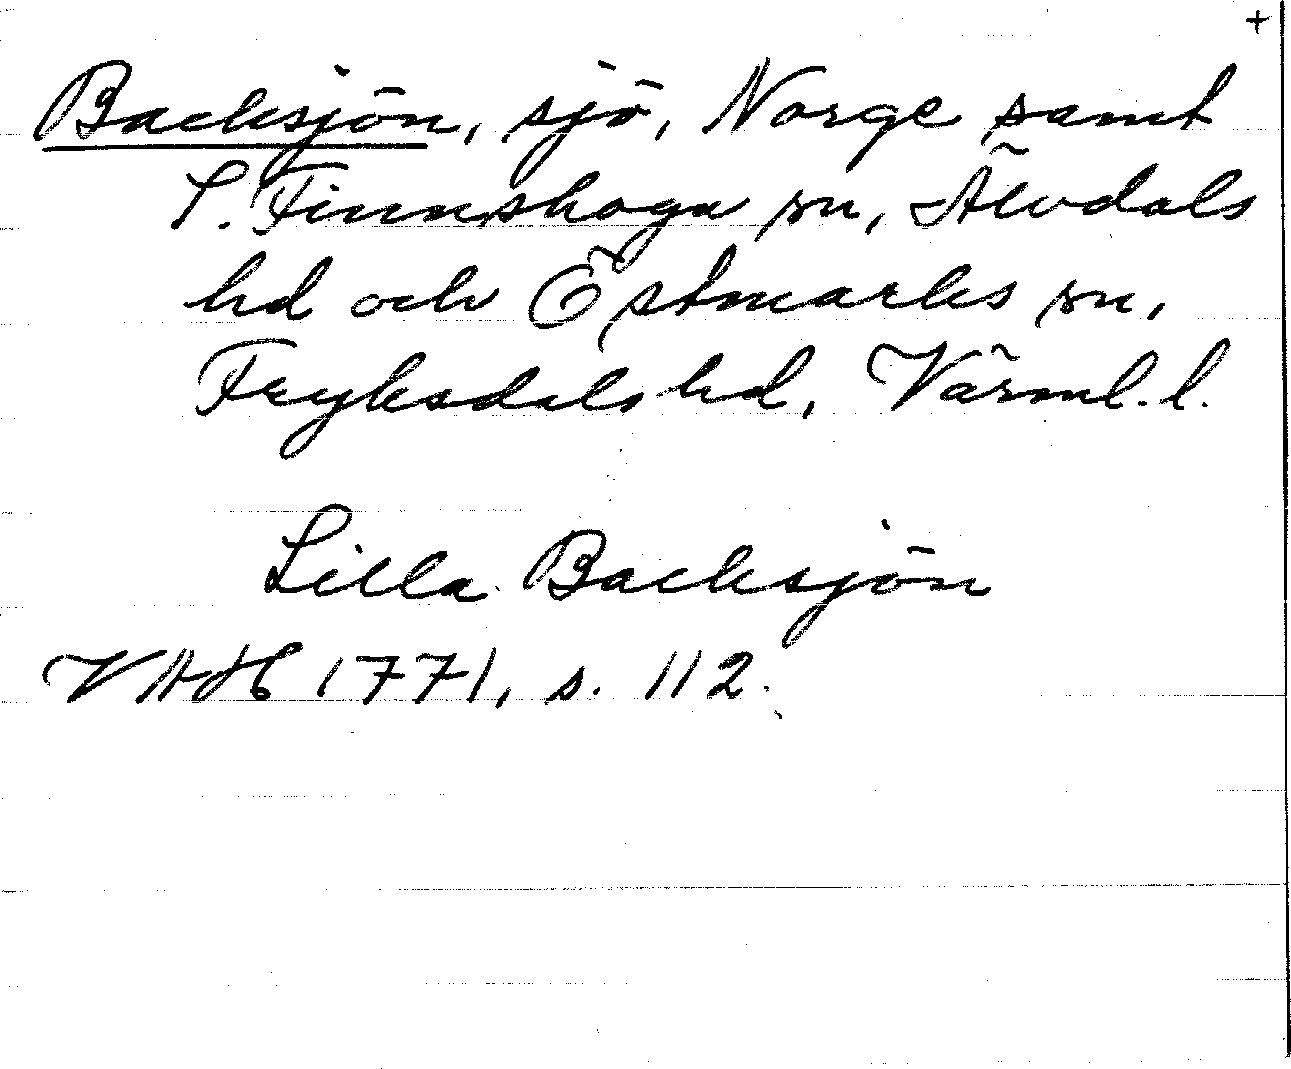 +
Backsjön, sjö, Norge samt
S. Finnskoga sn, Älvdals
hd och Östmarks sn,
Fryksdals hd, Värml. l.
Lilla Backsjön
VAH 1771, s. 112.